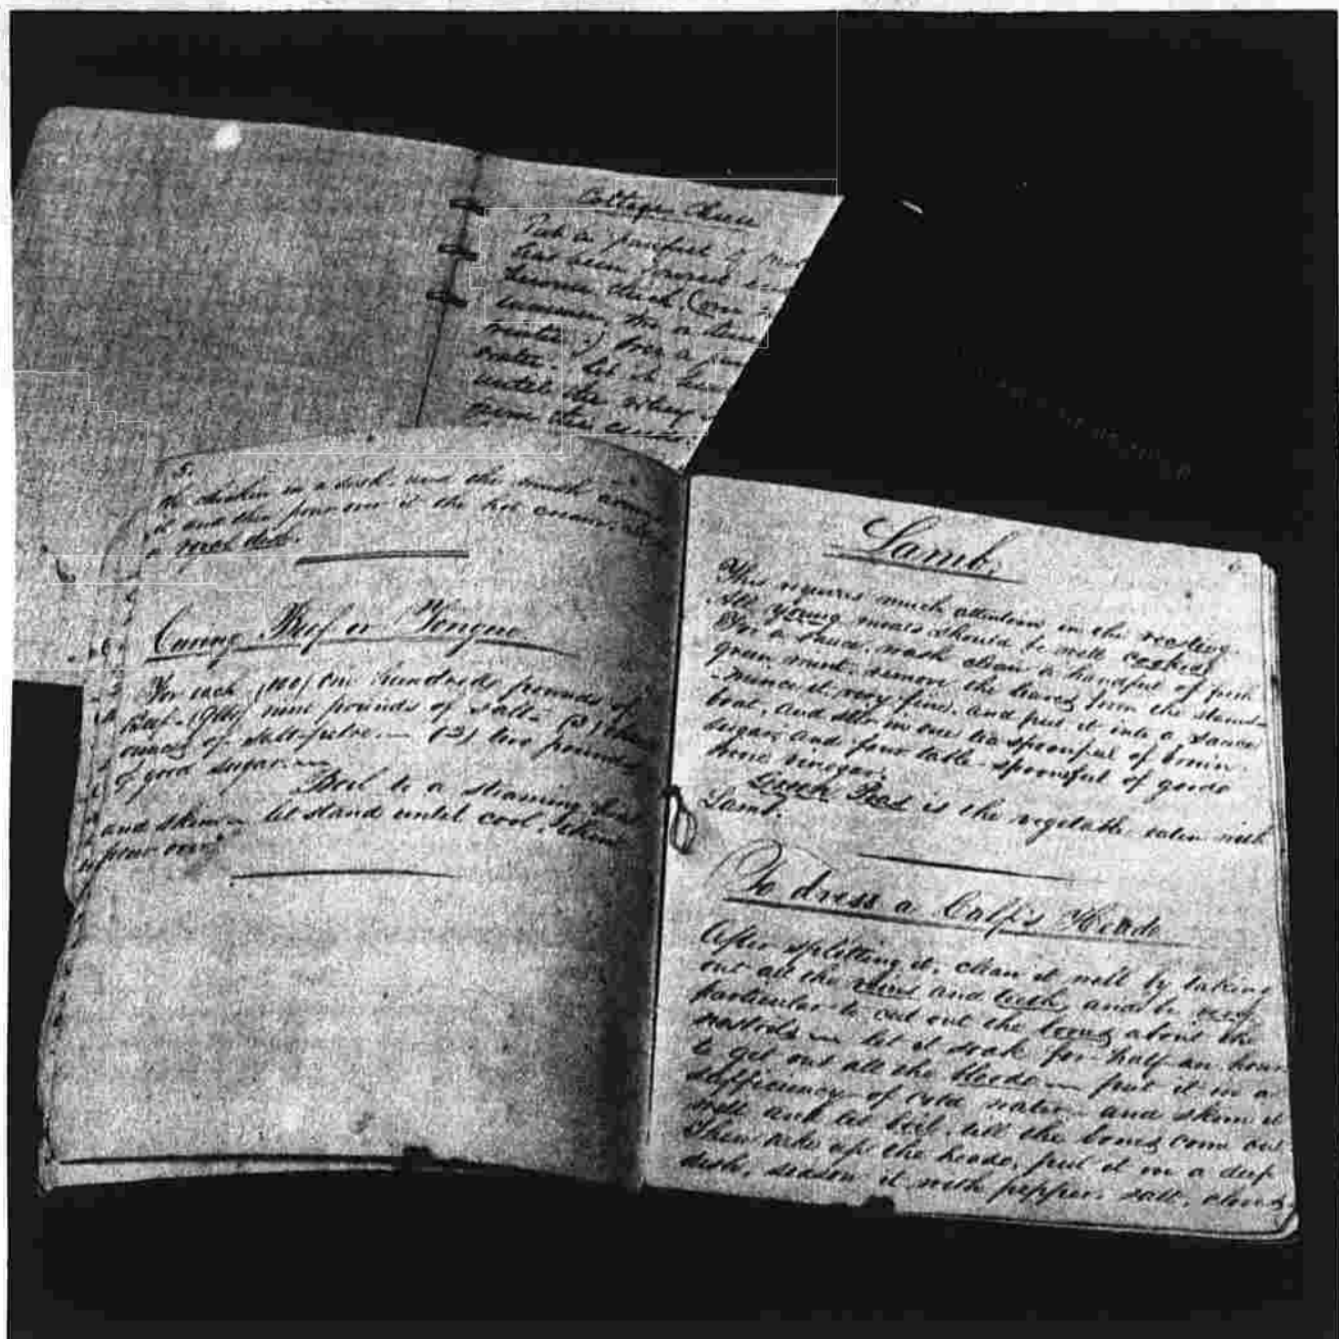 Cottage Cheese
Take a panfull of
has been
become thick (on
a
) Over a pan
water. Let it
until the whey
from the curds.
5.
the chicken in a dish, and
it and then pour over it the hot
a dish.
Curing Beef or Tongue
For each (100) one hundred pounds of
Beef - (9) nine pounds of salt - (3)
ounces of salt-petre — (2) two pounds
of good sugar. —
Boil to a steaming
and skim — let stand until cool. then
pour over
6
Lamb.
This requires much attention in the roasting.
All young meats should be well cooked.
For a sauce, wash clean a handful of fresh
green mint. remove the leaves from the stems
mince it very fine, and put it into a sauce
boat, and stir in one teaspoonful of brown
sugar and four table-spoonsful of good
wine vinegar.
Green Peas is the vegetable eaten with
Lamb.
To dress a Calf's Head
After splitting it, clean it well by taking
out all the and teeth, and be very
particular to cut out the bones about the
nostrils — let it soak for half-an-hour
to get out all the blood — put it in a
sufficiency of cold water — and skim it
well and let boil, till the bones come out
Then take up the head, put it in a deep
dish, season it with pepper, salt, cloves,